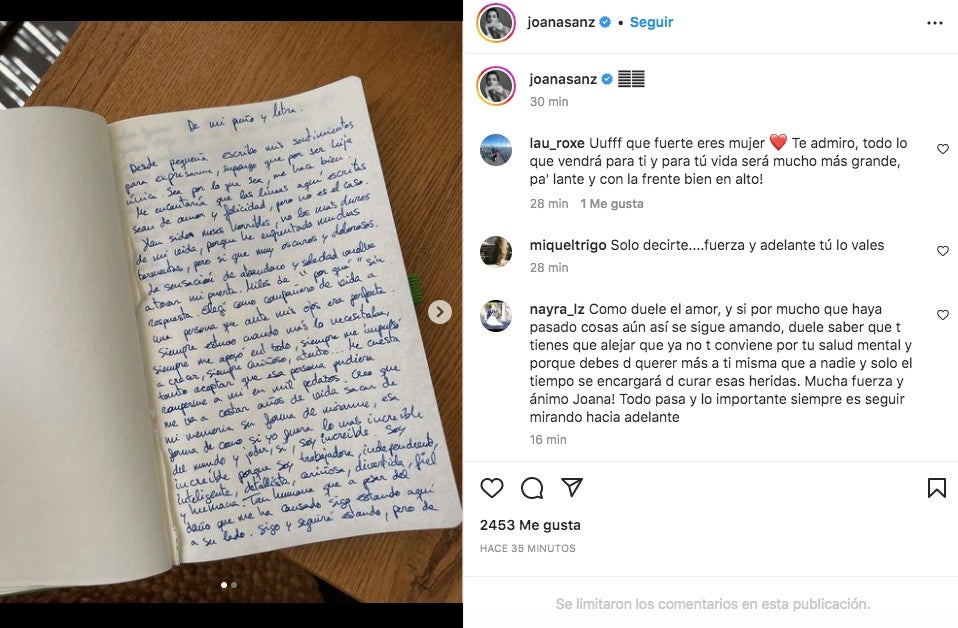 De mi puño y letra.
Desde pequeña escribo mis sentimientos
para expresarme, supongo que por ser hija
única. Sea por lo que sea, me hace bien.
Me encantaría que las líneas aquí escritas
sean de amor y felicidad, pero no es el caso.
Han sidos meses horribles, no los más duros
de mi vida, porque he enfrentado muchas
tormentas, pero si que muy oscuros y dolorosos.
La sensación de abandono y soledad vuelve
a tocar mi puerta. Miles de "por qué" sin
respuesta. Elegí como compañero de vida a
una persona que ante mis ojos era perfecta.
Siempre estuvo cuando más lo necesitaba,
siempre me apoyó en todo, siempre me impulsó
a crecer, siempre cariñoso, atento... Me cuesta
tanto aceptar que esa persona pudiera
romperme a mi en mil pedazos. Creo que
me va a costar años de vida sacar de
mi memoria su forma de mirarme, esa
forma de como si yo fuera lo más increíble
del mundo y joder, si, soy increíble. Soy
increíble porque soy trabajadora, independiente,
inteligente, detallista, cariñosa, divertida, fiel
y humana. Tan humana que a pesar del
daño que me ha causado sigo estando aquí
a su lado. Sigo y seguiré estando, pero de
joanasanz • Seguir
joanasanz
30 min
lau_roxe Uufff que fuerte eres mujer ❤️ Te admiro, todo lo
que vendrá para ti y para tú vida será mucho más grande,
pa' lante y con la frente bien en alto!
28 min 1 Me gusta
miqueltrigo Solo decirte....fuerza y adelante tú lo vales
28 min
nayra_lz Como duele el amor, y si por mucho que haya
pasado cosas aún así se sigue amando, duele saber que t
tienes que alejar que ya no t conviene por tu salud mental y
porque debes d querer más a ti misma que a nadie y solo el
tiempo se encargará d curar esas heridas. Mucha fuerza y
ánimo Joana! Todo pasa y lo importante siempre es seguir
mirando hacia adelante
16 min
2453 Me gusta
HACE 35 MINUTOS
Se limitaron los comentarios en esta publicación.